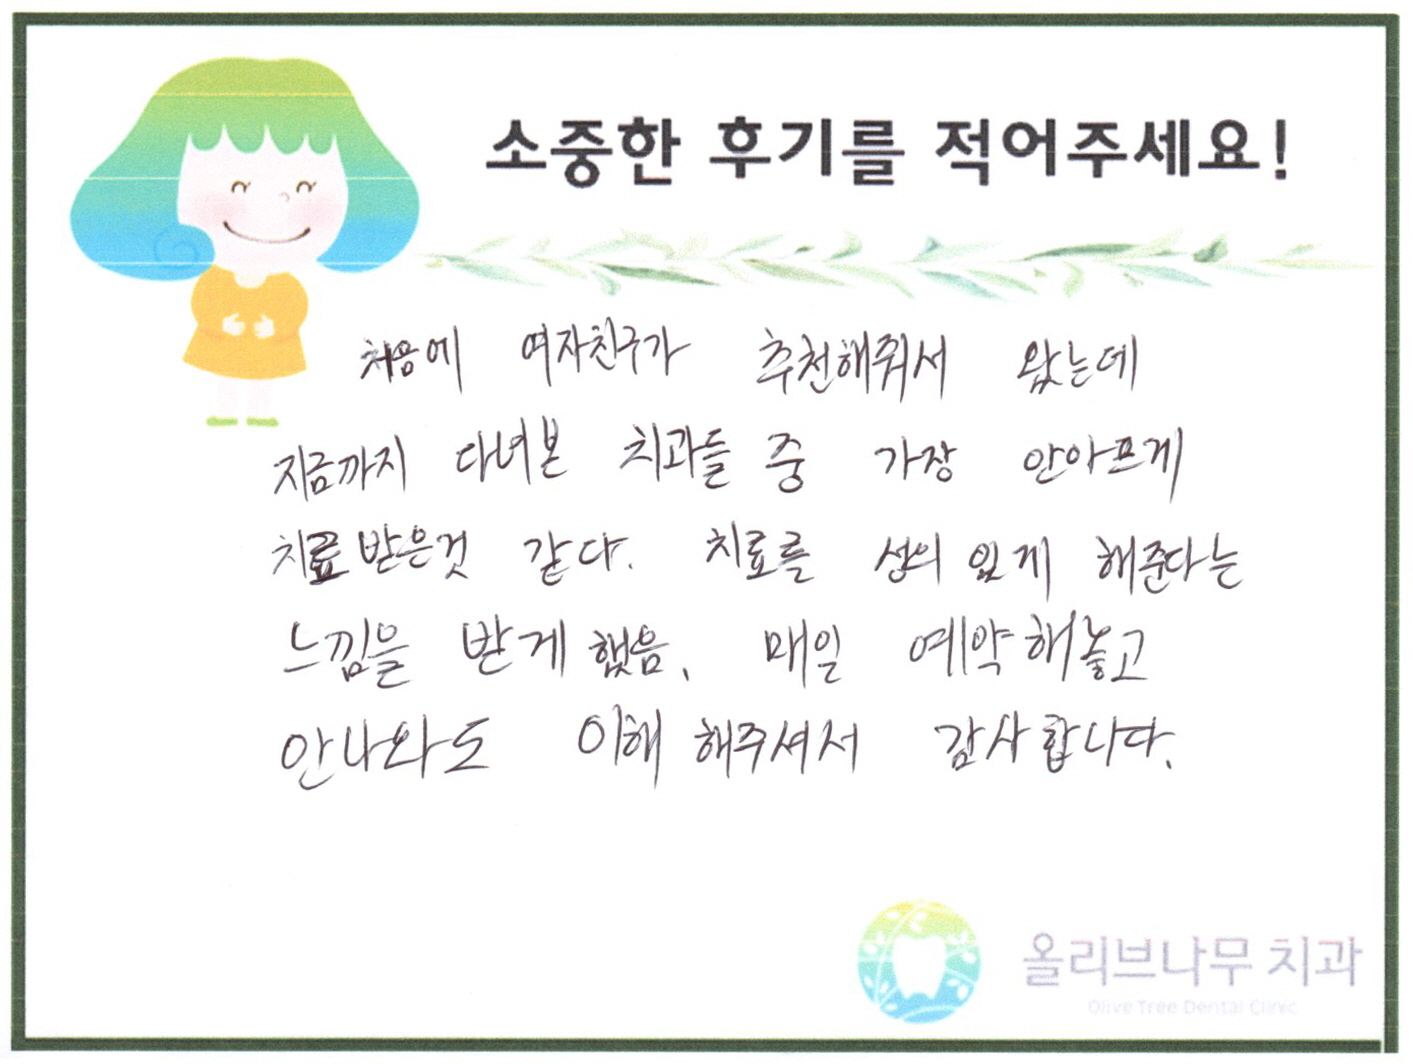 소중한 후기를 적어주세요!
처음에 여자친구가 추천해줘서 왔는데
지금까지 다녀본 치과들 중 가장 안아프게
치료 받은것 같다. 치료를 성의 있게 해준다는
느낌을 받게 했음. 매일 예약해놓고
안나와도 이해 해주셔서 감사합니다.
올리브나무 치과
Olive Tree Dental Clinic